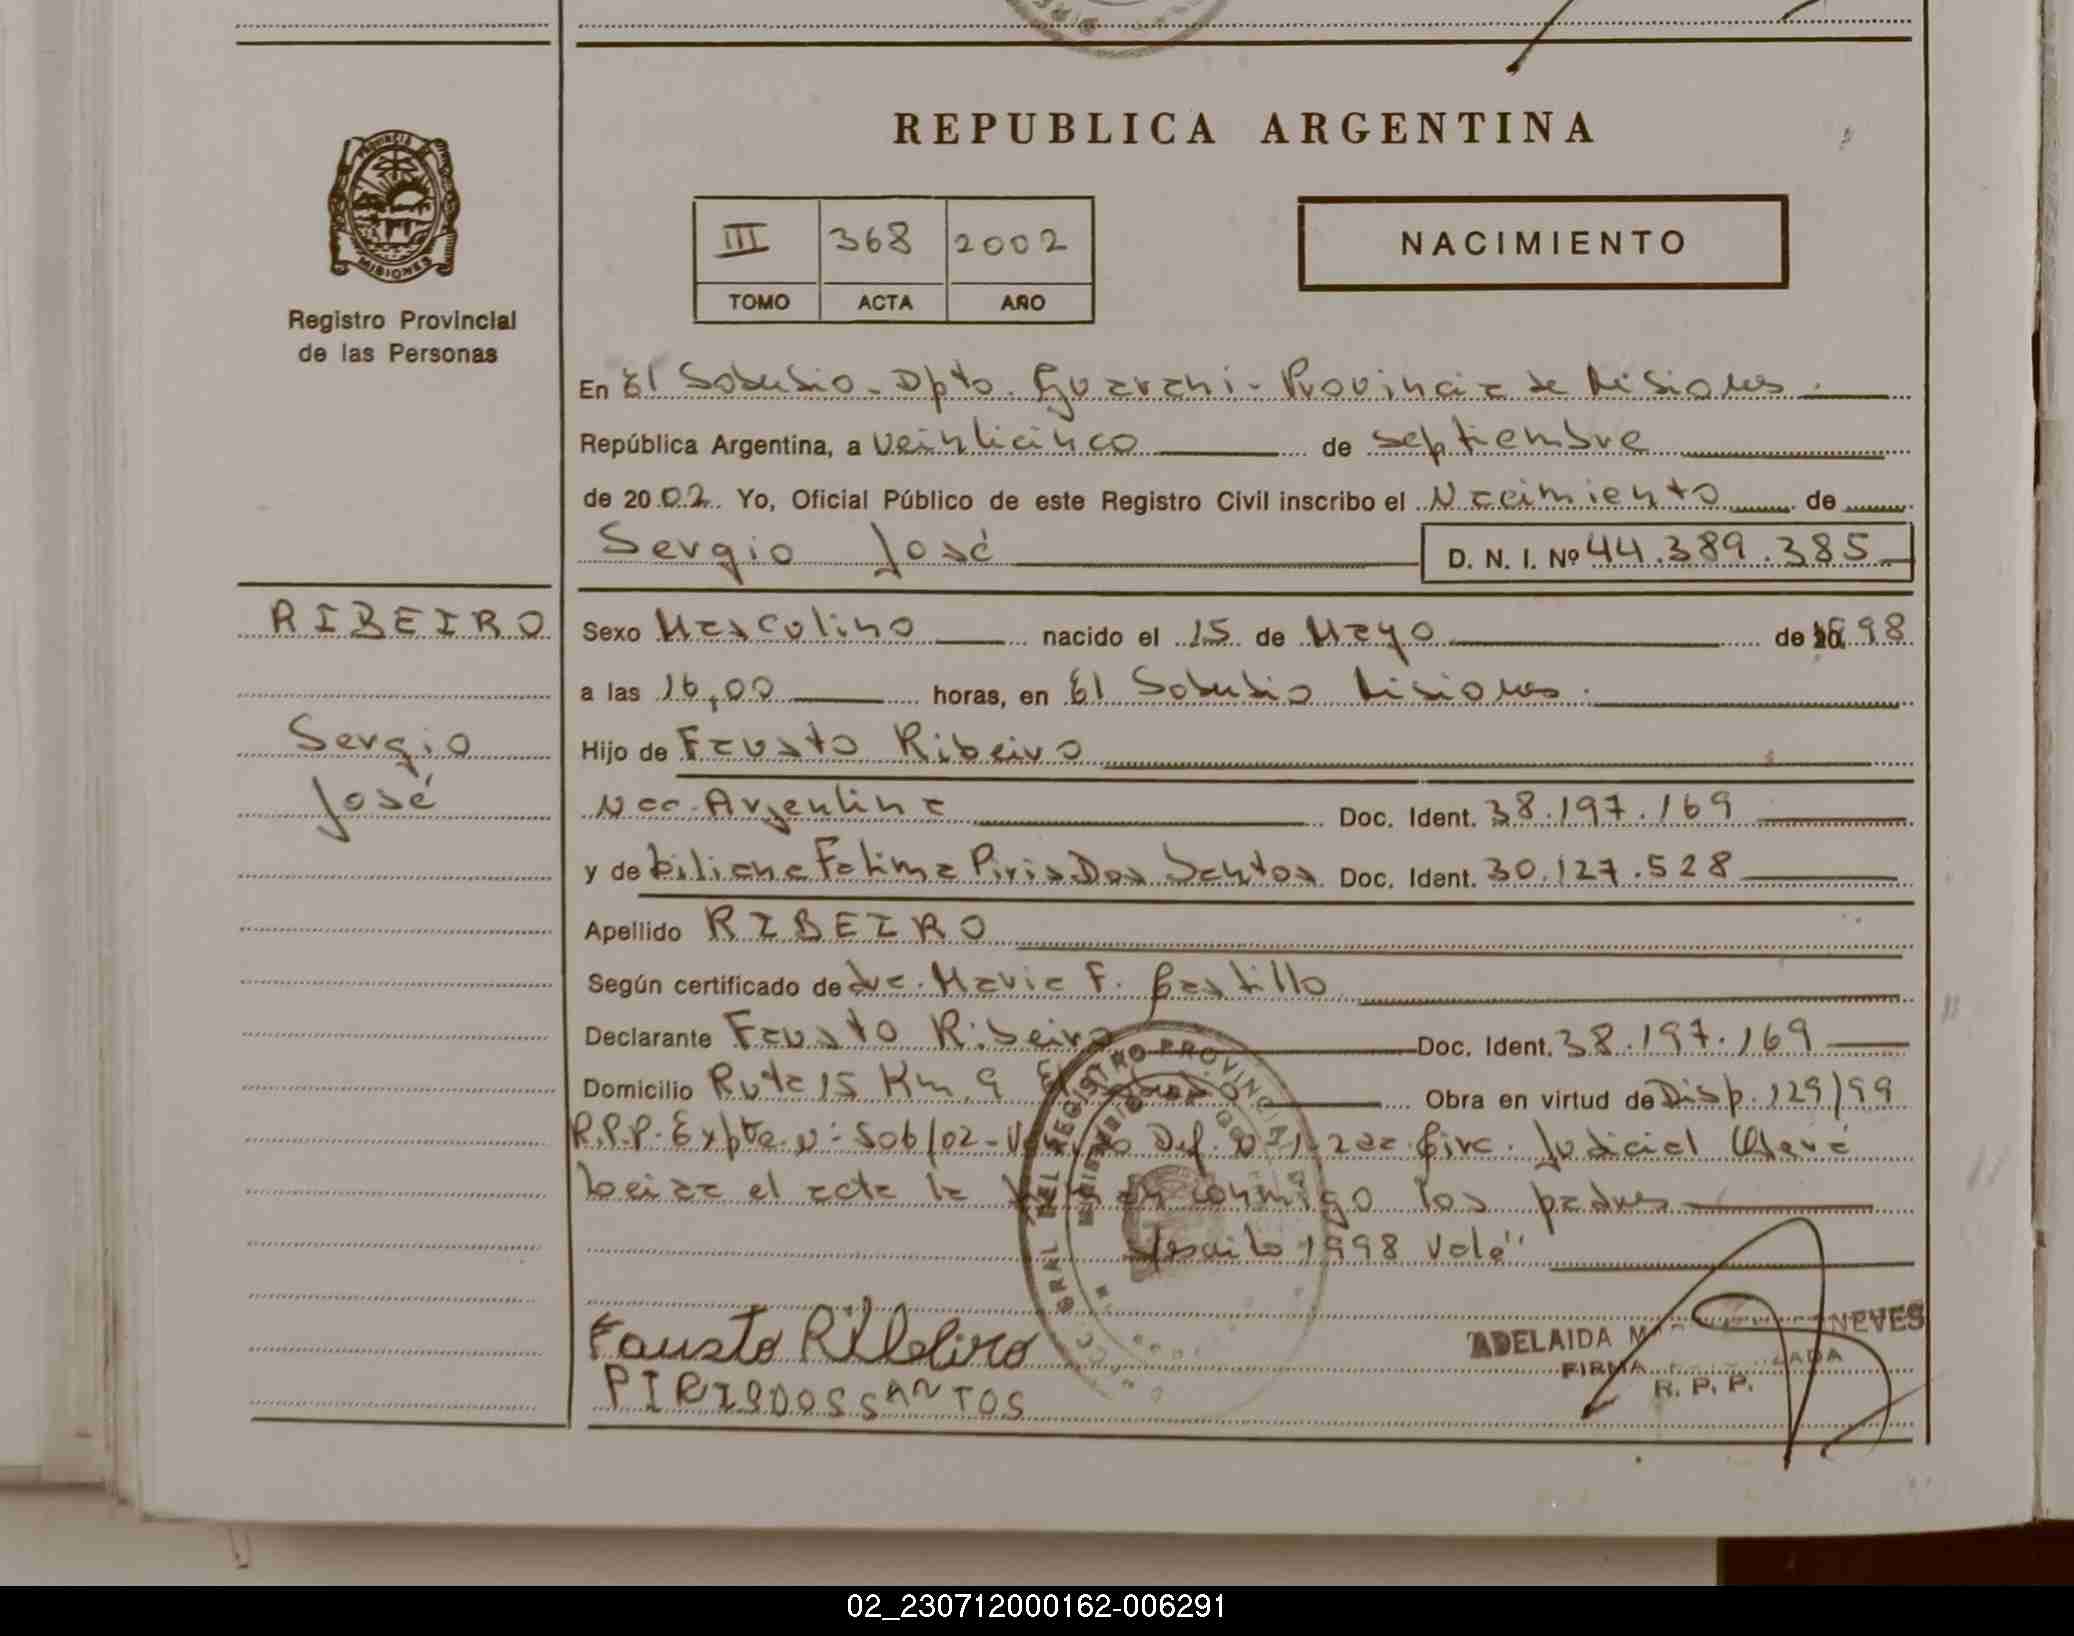 REPUBLICA ARGENTINA
PROVINCIA DE
MISIONES
Registro Provincial
de las Personas
III 368 2002
TOMO ACTA AÑO
NACIMIENTO
En El Soberbio - Dpto. Guarani - Provincia de Misiones.
República Argentina, a veinticinco de septiembre
de 2002 Yo, Oficial Público de este Registro Civil inscribo el Nacimiento de
Sergio José D. N. I. Nº 44.389.385
RIBEIRO
Sergio
José
Sexo Masculino nacido el 15 de Mayo de 1998
a las 16,00 horas, en El Soberbio Misiones.
Hijo de Fausto Ribeiro
Nac. Argentina Doc. Ident. 38.197.169
y de Liliana Fatima Piris Dos Santos Doc. Ident. 30.127.528
Apellido RIBEIRO
Según certificado de dra. Maria F. Castillo
Declarante Fausto Ribeiro Doc. Ident. 38.197.169
Domicilio Ruta 15 Km. 9 El Obra en virtud de Disp. 129/99
R.P.P. Expte. Nº 506/02 - Def. Nº 1 - 2da Circ. Judicial Oberá
Leida el acta la conmigo los padres
1998 Vale"
REGISTRO PROVINCIAL
GRAL DEL
Fausto Ribeiro
PIRISDOSSANTOS
ADELAIDA NEVES
FIRMA
R. P. P.
02_230712000162-006291